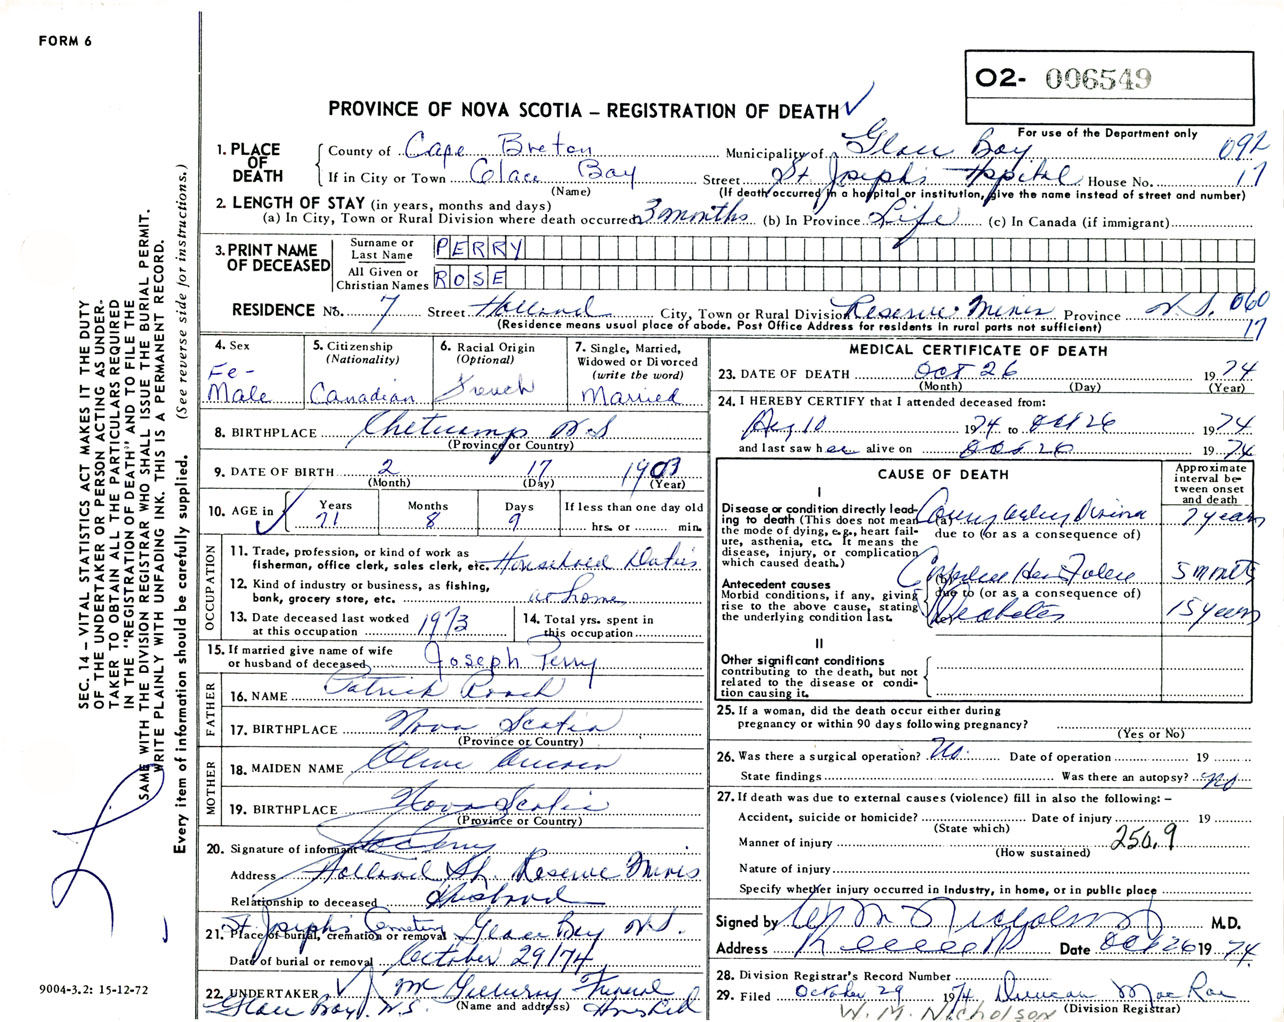 FORM 6
O2- 006549
PROVINCE OF NOVA SCOTIA – REGISTRATION OF DEATH
For use of the Department only
1. PLACE OF DEATH
County of Cape Breton Municipality of Glace Bay 092
If in City or Town Glace Bay Street St Joseph's Hospital House No. 17
(Name) (If death occurred in a hospital or institution, give the name instead of street and number)
2. LENGTH OF STAY (in years, months and days)
(a) In City, Town or Rural Division where death occurred 3 months (b) In Province Life (c) In Canada (if immigrant)
3. PRINT NAME OF DECEASED
Surname or Last Name PERRY
All Given or Christian Names ROSE
RESIDENCE No. 7 Street Holland City, Town or Rural Division Reserve Mines Province N.S. 060
(Residence means usual place of abode. Post Office Address for residents in rural parts not sufficient) 17
4. Sex Fe-Male
5. Citizenship (Nationality) Canadian
6. Racial Origin (Optional) French
7. Single, Married, Widowed or Divorced (write the word) Married
8. BIRTHPLACE Chetcamp N S
(Province or Country)
9. DATE OF BIRTH 2 17 1903
(Month) (Day) (Year)
10. AGE in Years Months Days If less than one day old
71 8 9 hrs. or min.
OCCUPATION
11. Trade, profession, or kind of work as fisherman, office clerk, sales clerk, etc. Household Duties
12. Kind of industry or business, as fishing, bank, grocery store, etc. at home
13. Date deceased last worked at this occupation 1973
14. Total yrs. spent in this occupation
15. If married give name of wife or husband of deceased Joseph Perry
FATHER
16. NAME Patrick Roach
17. BIRTHPLACE Nova Scotia
(Province or Country)
MOTHER
18. MAIDEN NAME Olive
19. BIRTHPLACE Nova Scotia
(Province or Country)
20. Signature of informant Perry
Address Holland St. Reserve Mines
Relationship to deceased Husband
St Joseph's Cemetery Glace Bay N.S.
21. Place of burial, cremation or removal
Date of burial or removal October 29/74
22. UNDERTAKER Funeral Home Ltd
Glace Bay N.S. (Name and address)
MEDICAL CERTIFICATE OF DEATH
23. DATE OF DEATH Oct 26 1974
(Month) (Day) (Year)
24. I HEREBY CERTIFY that I attended deceased from:
Aug 10 1974 to Oct 26 1974
and last saw her alive on Oct 26 1974
CAUSE OF DEATH
Approximate interval between onset and death
I
Disease or condition directly leading to death (This does not mean the mode of dying, e.g., heart failure, asthenia, etc. It means the disease, injury, or complication which caused death.)
(a) Coronary Artery Disease 7 years
due to (or as a consequence of)
Antecedent causes
Morbid conditions, if any, giving rise to the above cause, stating the underlying condition last.
(b) Congestive Heart Failure 5 months
due to (or as a consequence of)
(c) Diabetes 15 years
II
Other significant conditions contributing to the death, but not related to the disease or condition causing it.
25. If a woman, did the death occur either during pregnancy or within 90 days following pregnancy?
(Yes or No)
26. Was there a surgical operation? No. Date of operation 19
State findings Was there an autopsy? No
27. If death was due to external causes (violence) fill in also the following: –
Accident, suicide or homicide? Date of injury 19
(State which)
Manner of injury 250.9
(How sustained)
Nature of injury
Specify whether injury occurred in industry, in home, or in public place
Signed by W M Nicholson M.D.
Address Date Oct 26 1974
28. Division Registrar's Record Number
29. Filed October 29 1974 Duncan MacRae
W. M. Nicholson (Division Registrar)
SEC. 14 – VITAL STATISTICS ACT MAKES IT THE DUTY
OF THE UNDERTAKER OR PERSON ACTING AS UNDER-
TAKER TO OBTAIN ALL THE PARTICULARS REQUIRED
IN THE "REGISTRATION OF DEATH" AND TO FILE THE
SAME WITH THE DIVISION REGISTRAR WHO SHALL ISSUE THE BURIAL PERMIT.
WRITE PLAINLY WITH UNFADING INK. THIS IS A PERMANENT RECORD.
Every item of information should be carefully supplied. (See reverse side for instructions.)
9004-3.2: 15-12-72